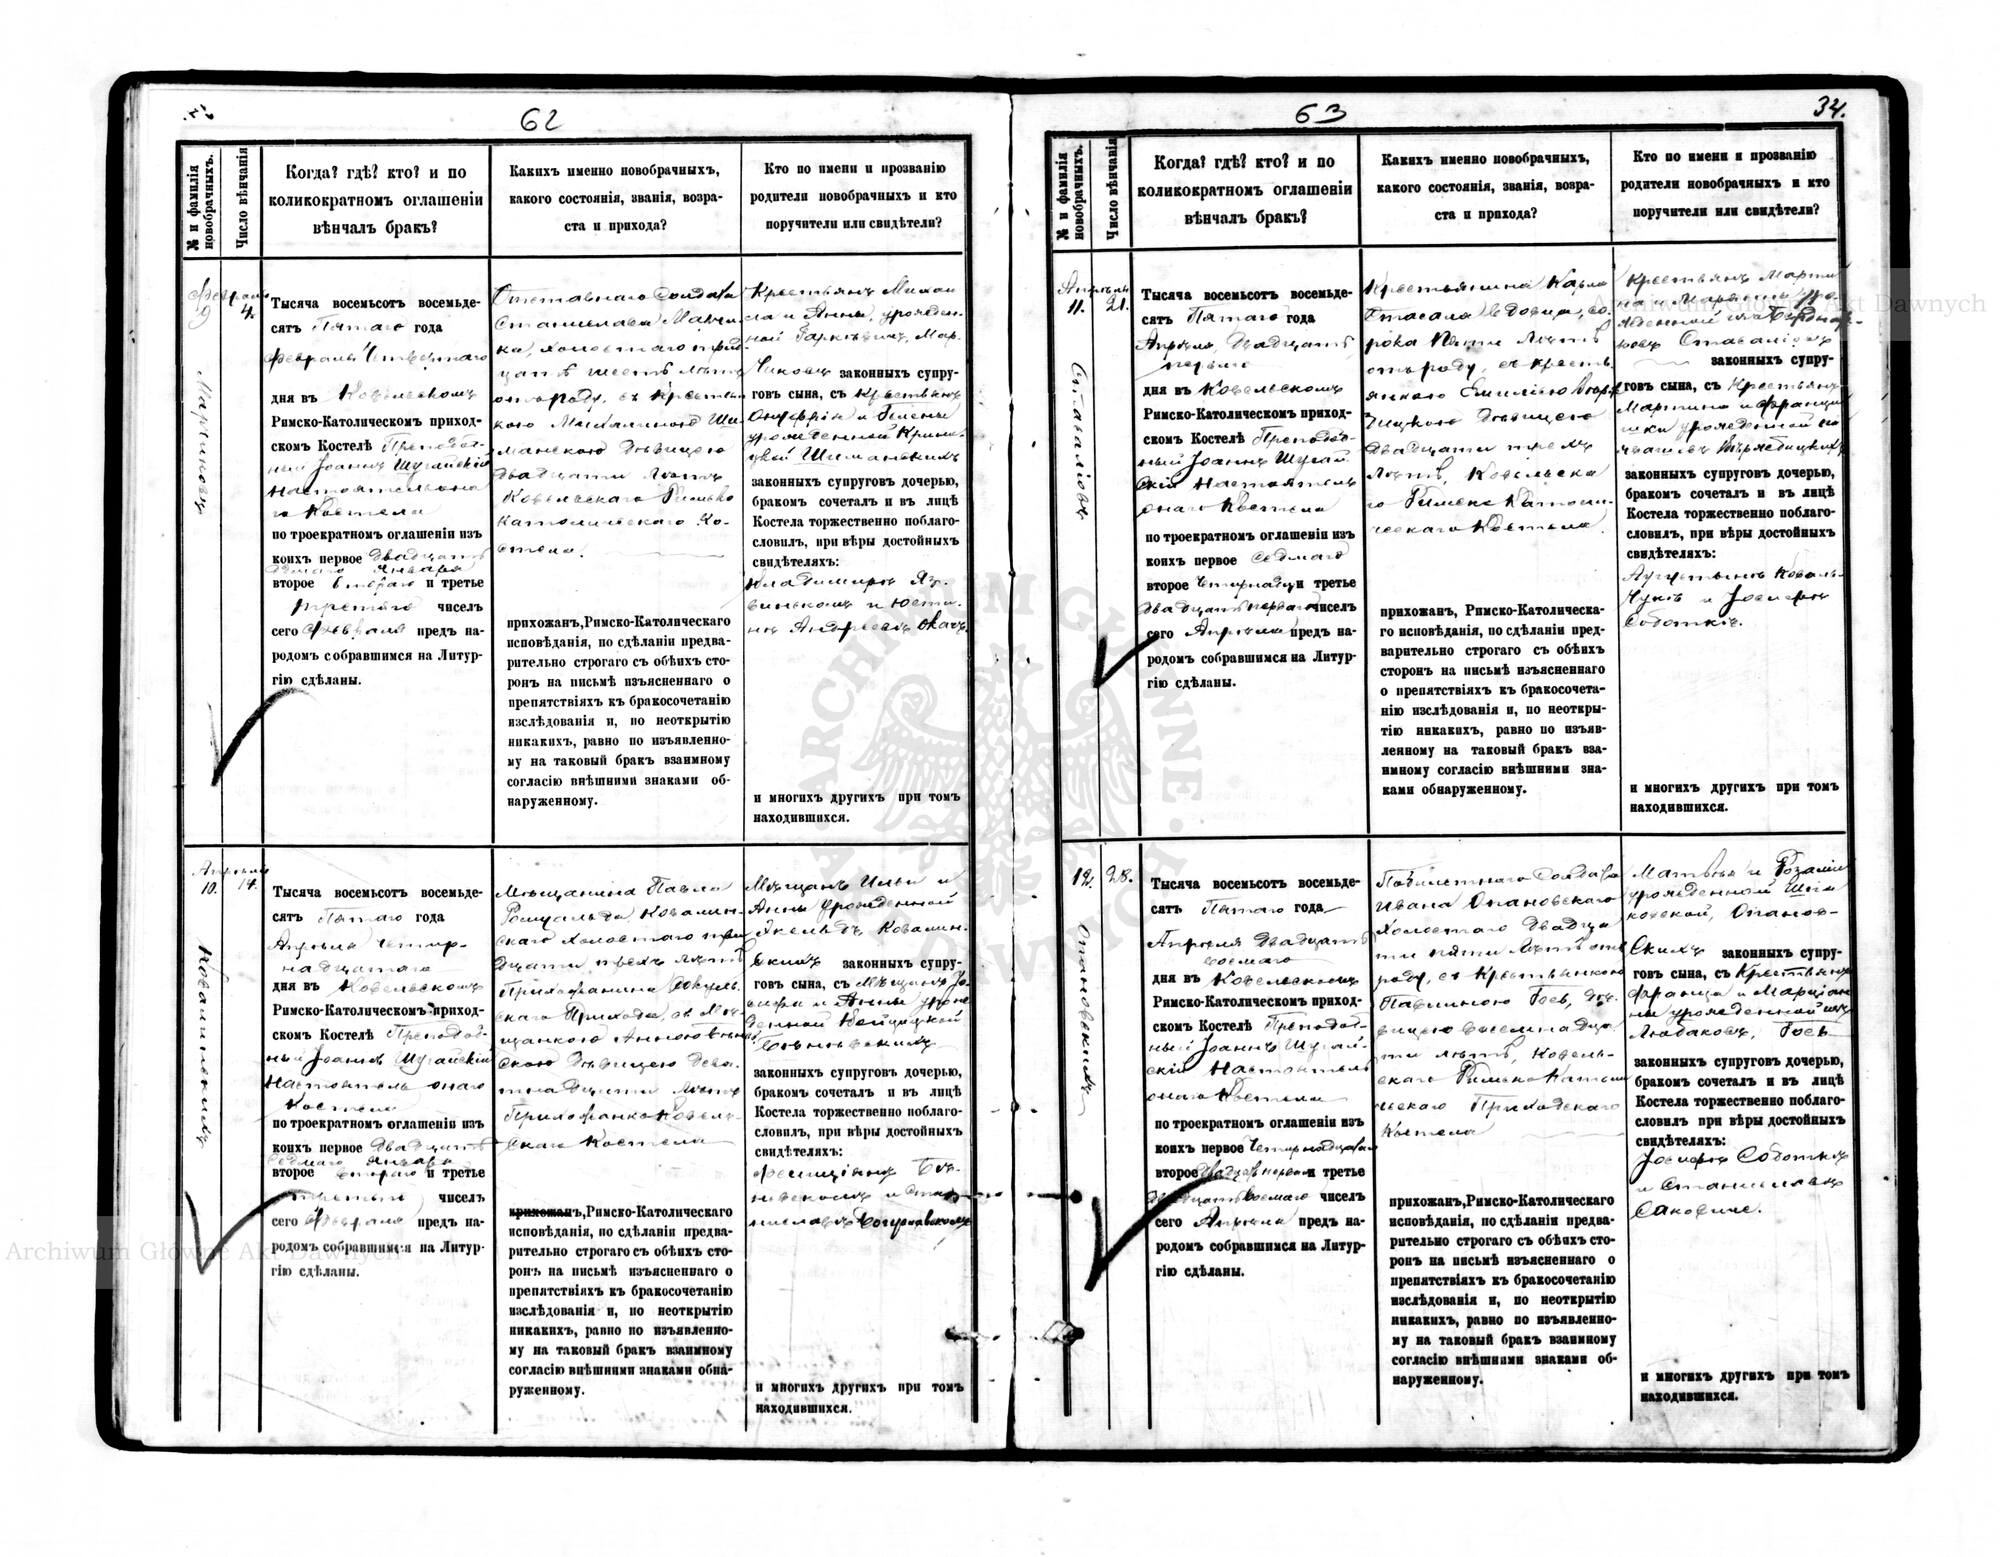 62
№ и фамилія новобрачныхъ.
Число вѣнчанія
Когда? гдѣ? кто? и по
коликократномъ оглашеніи
вѣнчалъ бракъ?
Какихъ именно новобрачныхъ,
какого состоянія, званія, возра-
ста и прихода?
Кто по имени и прозванію
родители новобрачныхъ и кто
поручители или свидѣтели?
Февраль
9
4.
Тысяча восемьсотъ восемьде-
сятъ Пятаго года
Февраля Четвертаго
дня въ Ковельскомъ
Римско-Католическомъ приход-
скомъ Костелѣ Преподоб-
ный Іоаннъ Шугайскій
Настоятель она
го Костела
по троекратномъ оглашеніи изъ
коихъ первое двадцать
седмаго Января
второе втораго и третье
третяго чиселъ
сего Февраля предъ на-
родомъ собравшимся на Литур-
гію сдѣланы.
Отставнаго Солдата
Станислава
холостаго трид-
цать шесть лѣтъ
отъ роду, съ Крестьян
кою Михалиною Ши
манскою дѣвицею
двадцати лѣтъ
Ковельскаго Римско
Католическаго Ко-
стела.
прихожанъ, Римско-Католическаго
исповѣданія, по сдѣланіи предва-
рительно строгаго съ обѣихъ сто-
ронъ на письмѣ изъясненнаго о
препятствіяхъ къ бракосочетанію
изслѣдованія и, по неоткрытію
никакихъ, равно по изъявленно-
му на таковый бракъ взаимному
согласію внѣшними знаками об-
наруженному.
Крестьянъ Михаи
ла и Анны, урожден-
ной
законныхъ супру-
говъ сына, съ Крестьянъ
Онуфрія и Елены
урожденной
Шиманскихъ
законныхъ супруговъ дочерью,
бракомъ сочеталъ и въ лицѣ
Костела торжественно поблаго-
словилъ, при вѣры достойныхъ
свидѣтеляхъ:
Владимиръ Яз-
винскомъ и Юсти-
нъ
и многихъ другихъ при томъ
находившихся.
Апрѣль
10.
14.
Ковалинскихъ
Тысяча восемьсотъ восемьде-
сятъ Пятаго года
Апрѣля четыр-
надцатаго
дня въ Ковельскомъ
Римско-Католическомъ приход-
скомъ Костелѣ Преподоб-
ный Іоаннъ Шугайскій
Настоятель онаго
Костела
по троекратномъ оглашеніи изъ
коихъ первое двадцать
седмаго Января
второе втораго и третье
третьяго чиселъ
сего Февраля предъ на-
родомъ собравшимся на Литур-
гію сдѣланы.
Мѣщанина Павла
Ромуальда Ковалин-
скаго холостаго три
дцати трехъ лѣтъ
Прихожанина
скаго Прихода, съ Мѣ-
щанкою Анною
скою дѣвицею девя-
тнадцати лѣтъ
Прихожанкою Ковель-
скаго Костела
прихожанъ, Римско-Католическаго
исповѣданія, по сдѣланіи предва-
рительно строгаго съ обѣихъ сто-
ронъ на письмѣ изъясненнаго о
препятствіяхъ къ бракосочетанію
изслѣдованія и, по неоткрытію
никакихъ, равно по изъявленно-
му на таковый бракъ взаимному
согласію внѣшними знаками обна-
руженному.
Мѣщанъ Ильи и
Анны урожденной
Ковалин-
скихъ законныхъ супру-
говъ сына, съ Мѣщанъ Іо-
сифа и Анны урож-
денной
законныхъ супруговъ дочерью,
бракомъ сочеталъ и въ лицѣ
Костела торжественно поблаго-
словилъ, при вѣры достойныхъ
свидѣтеляхъ:
Фелиціянъ
и Ста-
ниславъ
и многихъ другихъ при томъ
находившихся.
63
34.
№ и фамилія новобрачныхъ.
Число вѣнчанія
Когда? гдѣ? кто? и по
коликократномъ оглашеніи
вѣнчалъ бракъ?
Какихъ именно новобрачныхъ,
какого состоянія, званія, возра-
ста и прихода?
Кто по имени и прозванію
родители новобрачныхъ и кто
поручители или свидѣтели?
Апрѣль
11.
21.
Тысяча восемьсотъ восемьде-
сятъ Пятаго года
Апрѣля, двадцать
перваго
дня въ Ковельскомъ
Римско-Католическомъ приход-
скомъ Костелѣ Преподоб-
ный Іоаннъ Шугай-
скій Настоятель
онаго Костела
по троекратномъ оглашеніи изъ
коихъ первое седмаго
второе четырнадц и третье
двадцать перваго чиселъ
сего Апрѣля предъ на-
родомъ собравшимся на Литур-
гію сдѣланы.
Крестьянина Карла
вдовца, со-
рока пяти лѣтъ
отъ роду, съ кресть-
янкою Емиліею
дѣвицею
двадцати трехъ
лѣтъ, Ковельска
го Римско Католи-
ческаго Костела.
прихожанъ, Римско-Католическа-
го исповѣданія, по сдѣланіи пред-
варительно строгаго съ обѣихъ
сторонъ на письмѣ изъясненнаго
о препятствіяхъ къ бракосочета-
нію изслѣдованія и, по неоткры-
тію никакихъ, равно по изъяв-
ленному на таковый бракъ вза-
имному согласію внѣшними зна-
ками обнаруженному.
Крестьянъ Марти
на и Маріанны уро-
жденной
законныхъ супру-
говъ сына, съ Крестьянъ
Мартина и Францы
шки урожденной
законныхъ супруговъ дочерью,
бракомъ сочеталъ и въ лицѣ
Костела торжественно поблаго-
словилъ, при вѣры достойныхъ
свидѣтеляхъ:
Аугустынъ Коваль-
чукъ и Іосифъ
Соботкѣ.
и многихъ другихъ при томъ
находившихся.
12.
28.
Опановскихъ
Тысяча восемьсотъ восемьде-
сятъ Пятаго года
Апрѣля двадцать
восмаго
дня въ Ковельскомъ
Римско-Католическомъ приход-
скомъ Костелѣ Преподоб-
ный Іоаннъ Шугай-
скій Настоятель
онаго Костела
по троекратномъ оглашеніи изъ
коихъ первое четырнадцатаго
второе двадцать первая и третье
двадцать восмаго чиселъ
сего Апрѣля предъ на-
родомъ собравшимся на Литур-
гію сдѣланы.
Побилетнаго Солдата
Ивана Опановскаго
холостаго двадца
ти пяти лѣтъ отъ
роду, съ Крестьянкою
Павлиною Гоев, дѣ-
вицею восемнадца
ти лѣтъ, Ковель-
скаго Римско Католи
ческаго Приходскаго
Костела
прихожанъ, Римско-Католическаго
исповѣданія, по сдѣланіи предва-
рительно строгаго съ обѣихъ сто-
ронъ на письмѣ изъясненнаго о
препятствіяхъ къ бракосочетанію
изслѣдованія и, по неоткрытію
никакихъ, равно по изъявленно-
му на таковый бракъ взаимному
согласію внѣшними знаками об-
наруженному.
Матвѣя и Розаліи
урожденной
Опанов-
скихъ законныхъ супру-
говъ сына, съ Крестьянъ
Франца и Маріан
ны урожденной изъ
законныхъ супруговъ дочерью,
бракомъ сочеталъ и въ лицѣ
Костела торжественно поблаго-
словилъ, при вѣры достойныхъ
свидѣтеляхъ:
Іосифъ Соботкѣ
и Станиславъ
и многихъ другихъ при томъ
находившихся.
Archiwum Główne Akt Dawnych
Archiwum Główne Akt Dawnych
ARCHIWUM GŁÓWNE AKT DAWNYCH